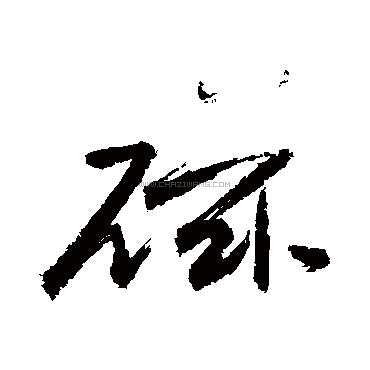 磁
WWW.CHAZIWANG.COM